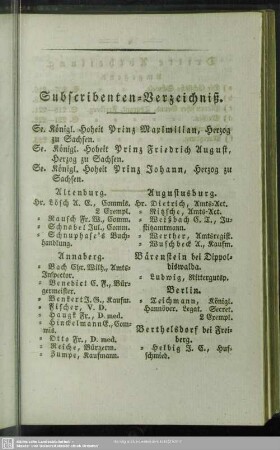 Subscribenten-Verzeichniß.
Se. Königl. Hoheit Prinz Maximilian, Herzog
zu Sachsen.
Se. Königl. Hoheit Prinz Friedrich August,
Herzog zu Sachsen.
Se. Königl. Hoheit Prinz Johann, Herzog zu
Sachsen.
Altenburg.
Hr. Lösch A. C., Commis.
2 Exempl.
» Rausch Fr. W., Comm.
» Schnabel Jul., Comm.
» Schnuphase's Buch-
handlung.
Annaberg.
» Bach Chr. Wilh., Amts-
Inspector.
» Benedict C. F., Bür-
germeister.
» Benkert J. G., Kaufm.
» Fischer, V. D.
» Haugk Fr., D. med.
» Hindelmann E., Com-
mis.
» Otto Fr., D. med.
» Reiche, Bürgerm.
» Zumpe, Kaufmann.
Augustusburg.
Hr. Dietrich, Amts-Act.
» Nitzsche, Amts-Act.
» Weißbach C. A., Ju-
stizamtmann.
» Werther, Amtsregist.
» Buschbeck A., Kaufm.
Bärenstein bei Dippol-
diswalda.
» Ludwig, Rittergutsp.
Berlin.
» Reichmann, Königl.
Hannöver. Legat. Secret.
2 Exempl.
Berthelsdorf bei Frei-
berg.
» Helbig J. C., Huf-
schmied.